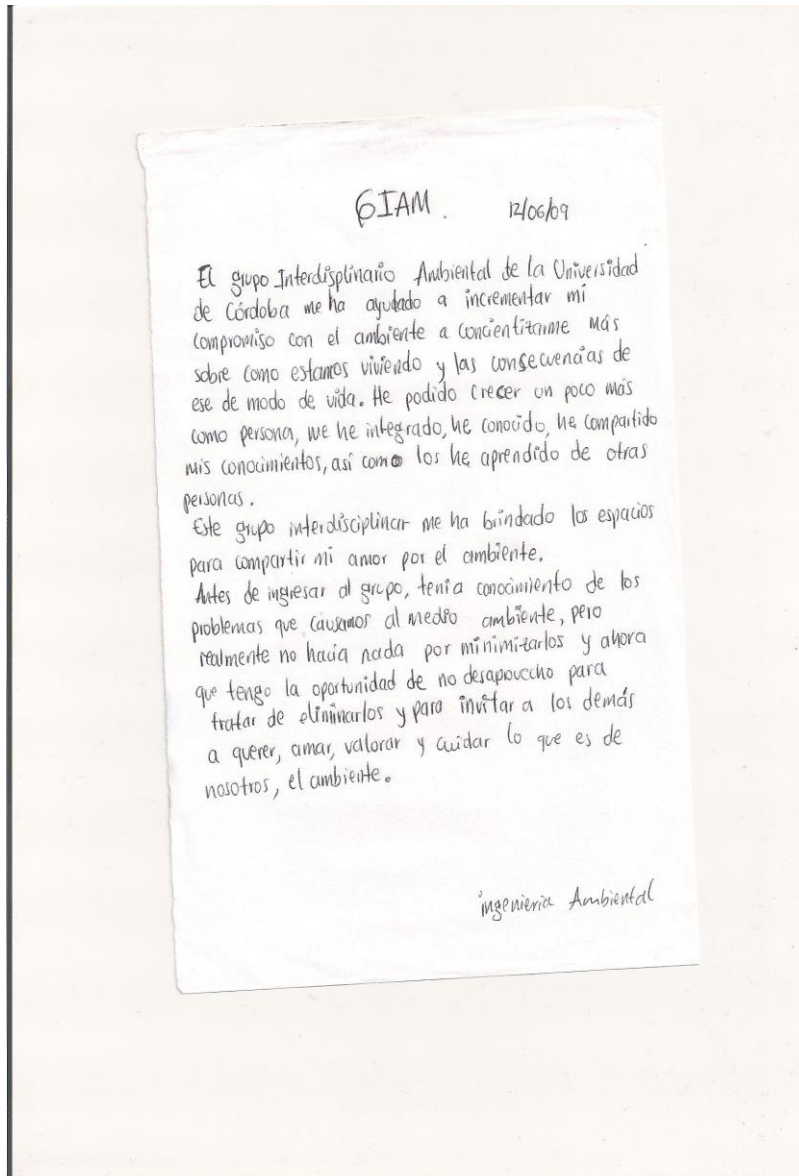 GIAM. 12/06/09
El grupo Interdisplinario Ambiental de la Universidad
de Córdoba me ha ayudado a incrementar mi
compromiso con el ambiente a concientizarme más
sobre como estamos viviendo y las consecuencias de
ese de modo de vida. He podido crecer un poco más
como persona, me he integrado, he conocido, he compartido
mis conocimientos, así como los he aprendido de otras
personas.
Este grupo interdisciplinar me ha brindado los espacios
para compartir mi amor por el ambiente.
Antes de ingresar al grupo, tenia conocimiento de los
problemas que causamos al medio ambiente, pero
realmente no hacia nada por minimizarlos y ahora
que tengo la oportunidad de no desaprovecho para
tratar de eliminarlos y para invitar a los demás
a querer, amar, valorar y cuidar lo que es de
nosotros, el ambiente.
ingenieria Ambiental